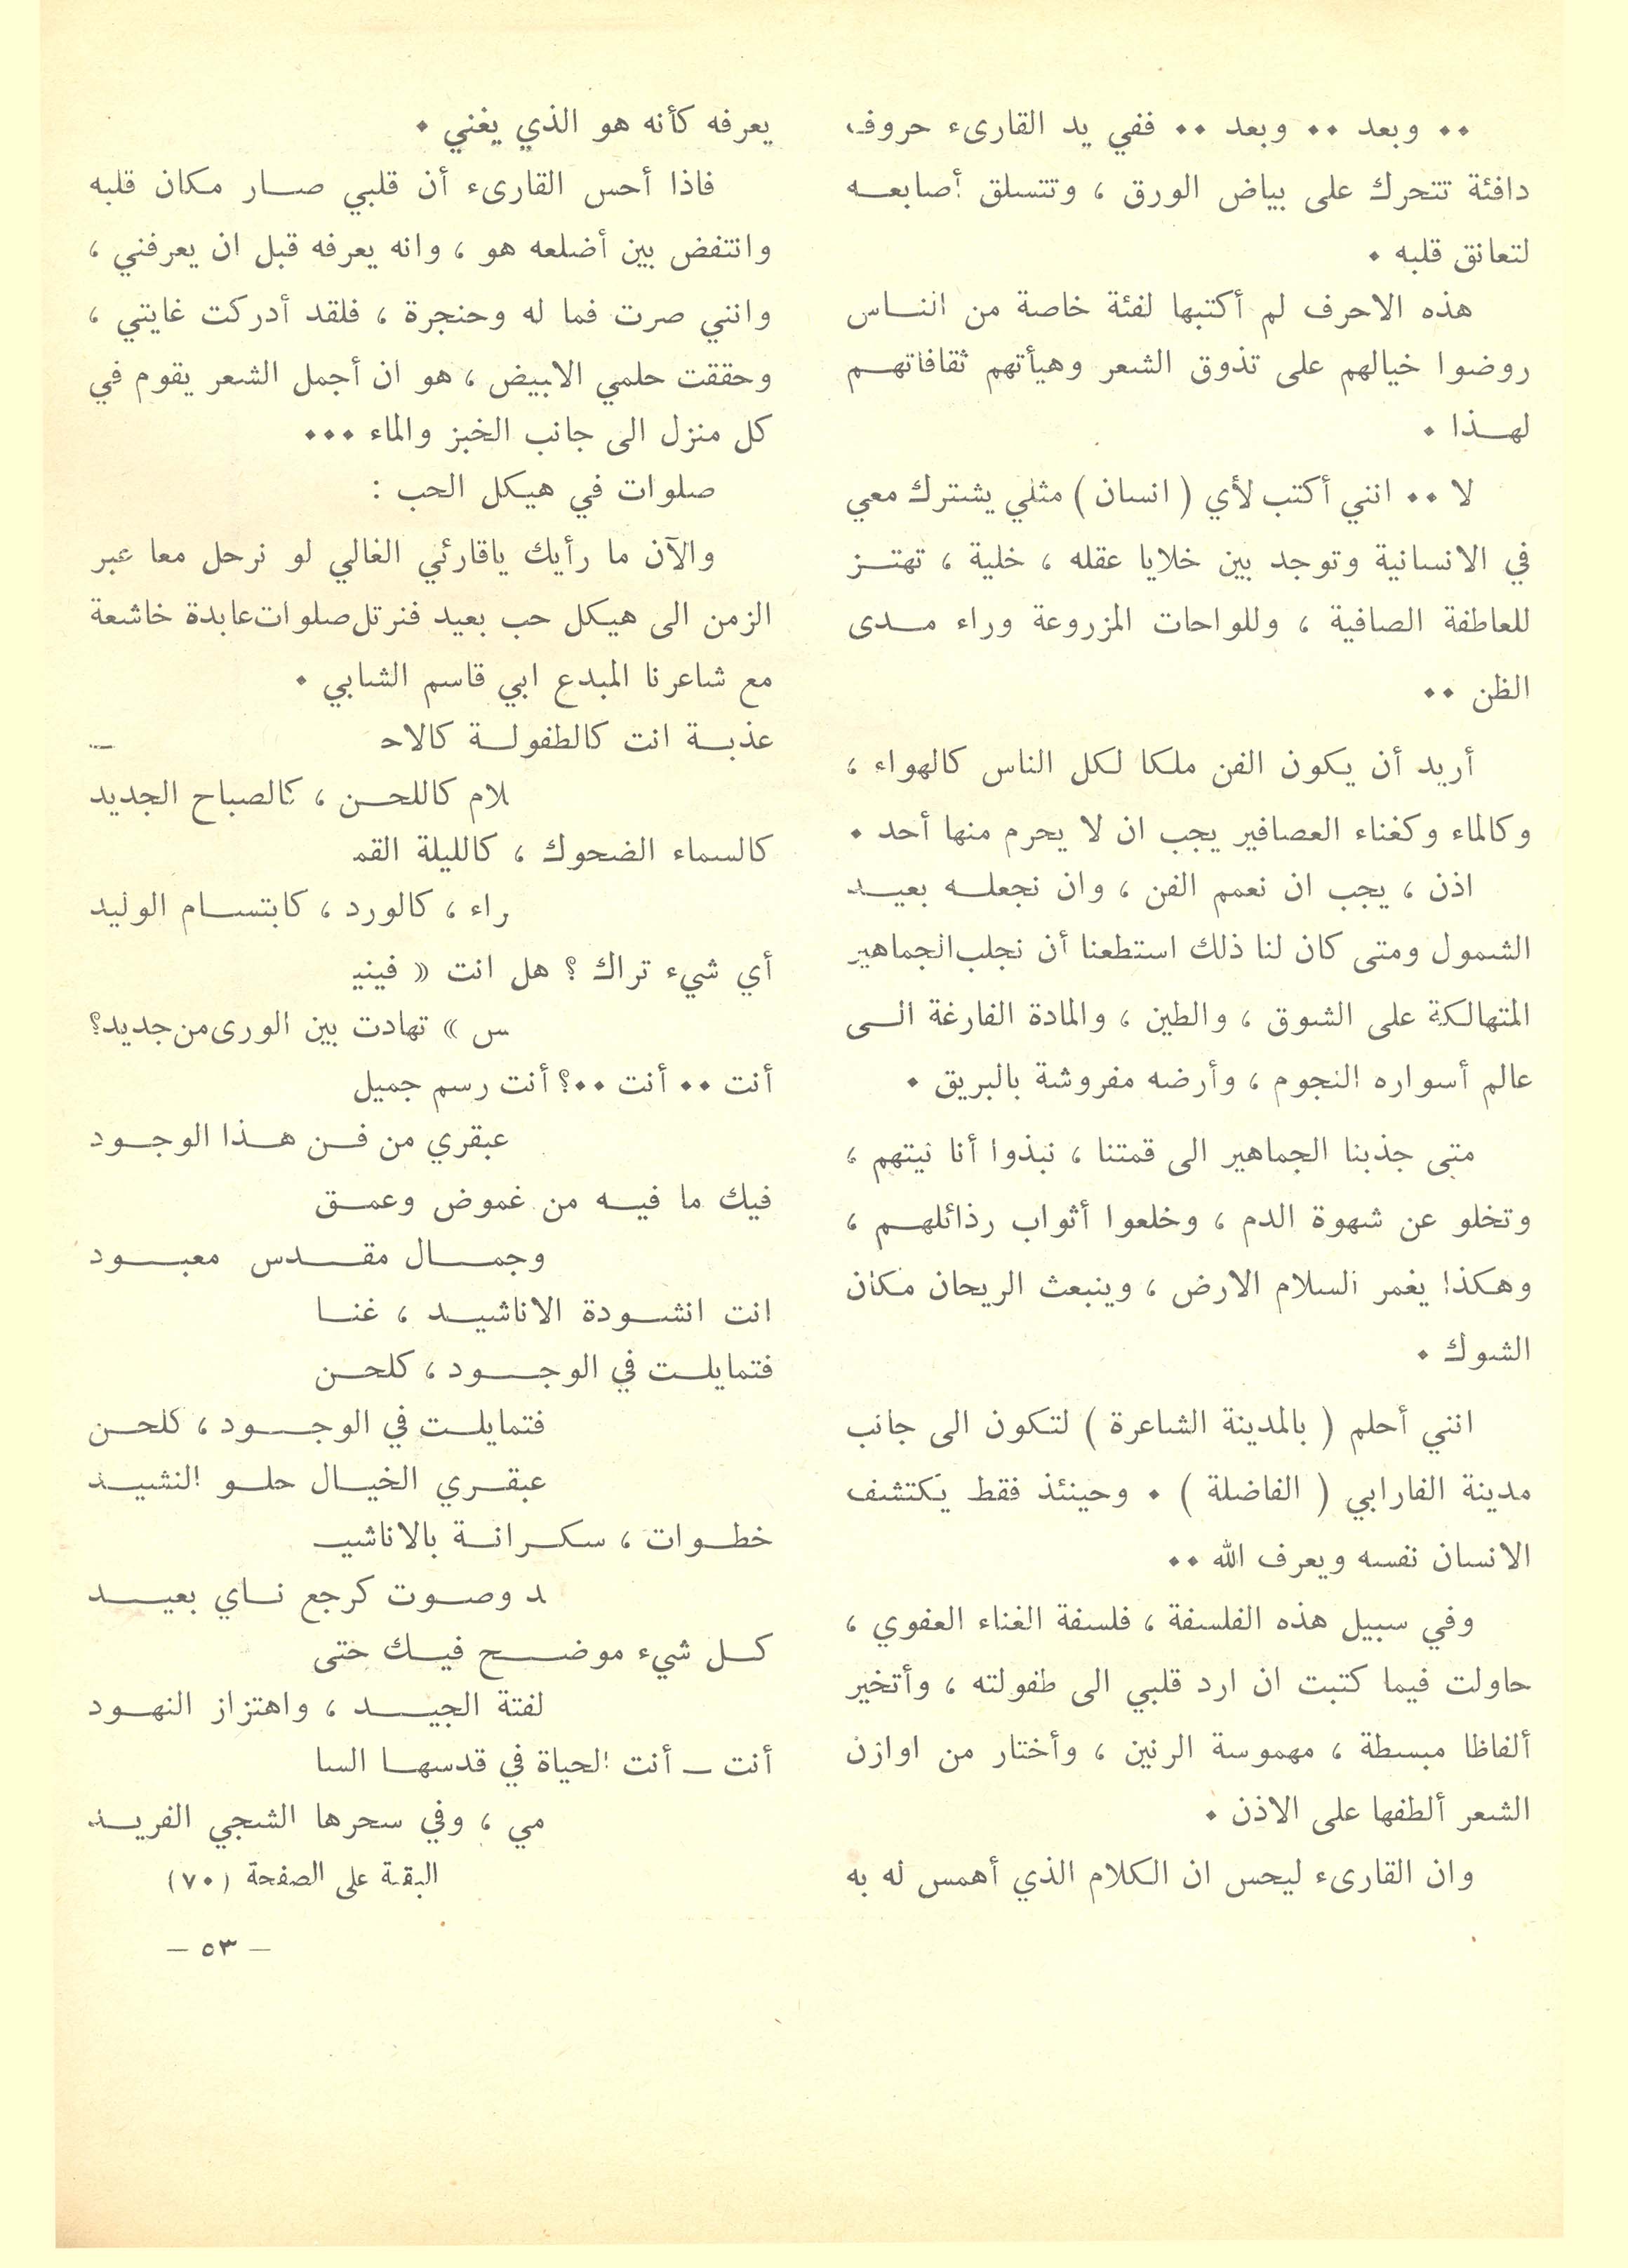 ٠٠ وبعد ٠٠ وبعد ٠٠ ففي يد القارىء حروف
دافئة تتحرك على بياض الورق ، وتتسلق أصابعه
لتعانق قلبه ٠
هذه الاحرف لم أكتبها لفئة خاصة من الناس
روضوا خيالهم على تذوق الشعر وهيأتهم ثقافاتهم
لهذا ٠
لا ٠٠ انني أكتب لأي ( انسان ) مثلي يشترك معي
في الانسانية وتوجد بين خلايا عقله ، خلية ، تهتز
للعاطفة الصافية ، وللواحات المزروعة وراء مدى
الظن ٠٠
أريد أن يكون الفن ملكا لكل الناس كالهواء ،
وكالماء وكغناء العصافير يجب ان لا يحرم منها أحد ٠
اذن ، يجب ان نعمم الفن ، وان نجعله بعيد
الشمول ومتى كان لنا ذلك استطعنا أن نجلب الجماهير
المتهالكة على الشوق ، والطين ، والمادة الفارغة الى
عالم أسواره النجوم ، وأرضه مفروشة بالبريق ٠
متى جذبنا الجماهير الى قمتنا ، نبذوا أنا نيتهم ،
وتخلو عن شهوة الدم ، وخلعوا أثواب رذائلهم ،
وهكذا يغمر السلام الارض ، وينبعث الريحان مكان
الشوك ٠
انني أحلم ( بالمدينة الشاعرة ) لتكون الى جانب
مدينة الفارابي ( الفاضلة ) ٠ وحينئذ فقط يكتشف
الانسان نفسه ويعرف الله ٠٠
وفي سبيل هذه الفلسفة ، فلسفة الغناء العفوي ،
حاولت فيما كتبت ان ارد قلبي الى طفولته ، وأتخير
ألفاظا مبسطة ، مهموسة الرنين ، وأختار من اوازن
الشعر ألطفها على الاذن ٠
وان القارىء ليحس ان الكلام الذي أهمس له به
يعرفه كأنه هو الذي يغني ٠
فاذا أحس القارىء أن قلبي صار مكان قلبه
وانتفض بين أضلعه هو ، وانه يعرفه قبل ان يعرفني ،
وانني صرت فما له وحنجرة ، فلقد أدركت غايتي ،
وحققت حلمي الابيض ، هو ان أجمل الشعر يقوم في
كل منزل الى جانب الخبز والماء ٠٠٠
صلوات في هيكل الحب :
والآن ما رأيك ياقارئي الغالي لو نرحل معا عبر
الزمن الى هيكل حب بعيد فنرتل صلوات عابدة خاشعة
مع شاعرنا المبدع ابي قاسم الشابي ٠
عذبة انت كالطفولة كالاحـ
ـلام كاللحن ، كالصباح الجديد
كالسماء الضحوك ، كالليلة القمـ
ـراء ، كالورد ، كابتسام الوليد
أي شيء تراك ؟ هل انت « فينيـ
ـس » تهادت بين الورى من جديد؟
أنت ٠٠ أنت ٠٠؟ أنت رسم جميل
عبقري من فن هذا الوجود
فيك ما فيه من غموض وعمق
وجمال مقدس معبود
انت انشودة الاناشيد ، غنا
فتمايلت في الوجود ، كلحن
فتمايلت في الوجود ، كلحن
عبقري الخيال حلو النشيد
خطوات ، سكرانة بالاناشيـ
ـد وصوت كرجع ناي بعيد
كل شيء موضح فيك حتى
لفتة الجيد ، واهتزاز النهود
أنت ــ أنت الحياة في قدسها السا
مي ، وفي سحرها الشجي الفريد
البقية على الصفحة (٧٠)
— ٥٣ —